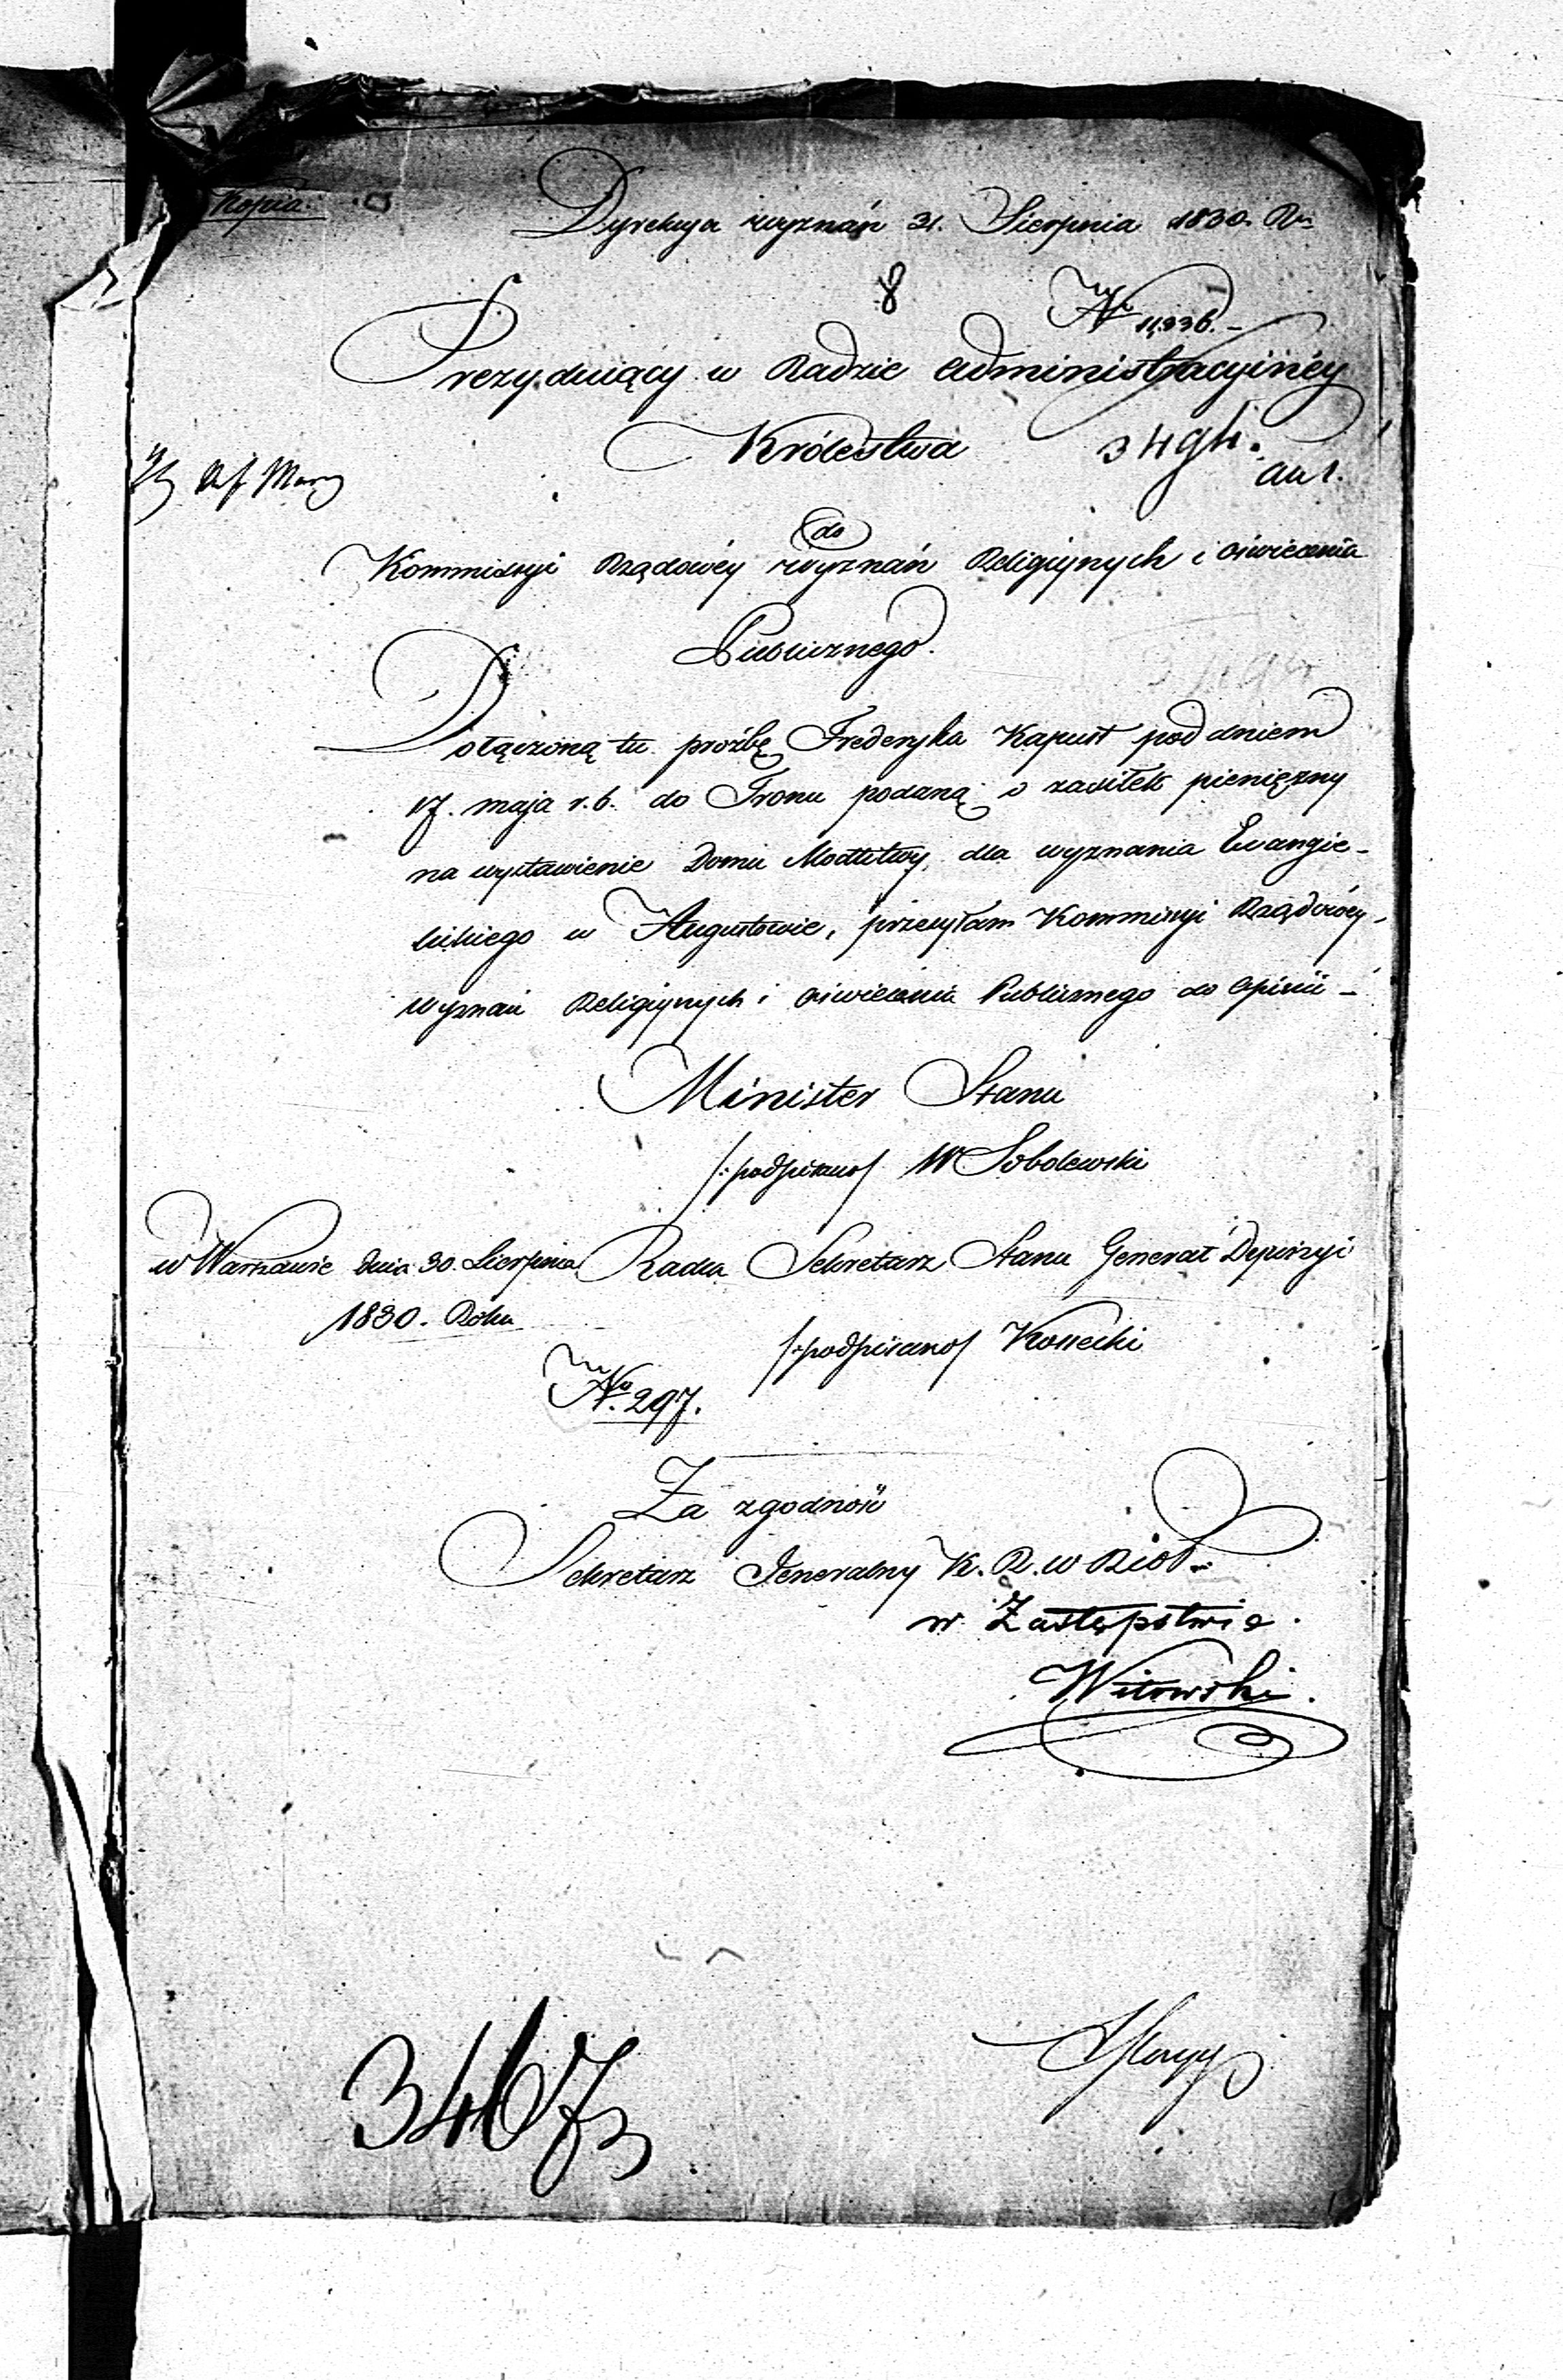 Kopia.
Dyrekcya wyznań 31. Sierpnia 1830. R.
8
No 11,336.
Prezyduiący w Radzie Administracyinéy
Królestwa
au 1.
do
Kommissyi Rządowéy Wyznań Religiynych i Oświecenia
Publicznego.
Dołączoną tu proźbę Frederyka Kapust pod dniem
17. maja r. b. do Tronu podaną o zasiłek pieniężny
na wystawienie Domu Modlitwy, dla wyznania Ewangie-
lickiego w Augustowie, przesyłam Kommissyi Rządowéy
Wyznań Religiynych i Oświecenia Publicznego do Opinii -
Minister Stanu
/:podpisano/ W Sobolewski
w Warszawie dnia 30. Sierpnia Radca Sekretarz Stanu Generał Dywizyi
1830. Roku
/:podpisano/ Kossecki
No. 297.
Za zgodność
Sekretarz Jeneralny K. R. W R i O P.
w Zastępstwie.
Witowski.